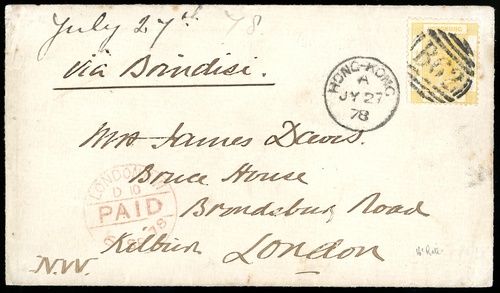 July 27th 78.
via Brindisi.
HONG-KONG
A
JY 27
78
B62
Mrs James Davis.
Bruce House
LONDON
D 10
PAID
78
Brondesbury Road
Kilburn London
N.W.